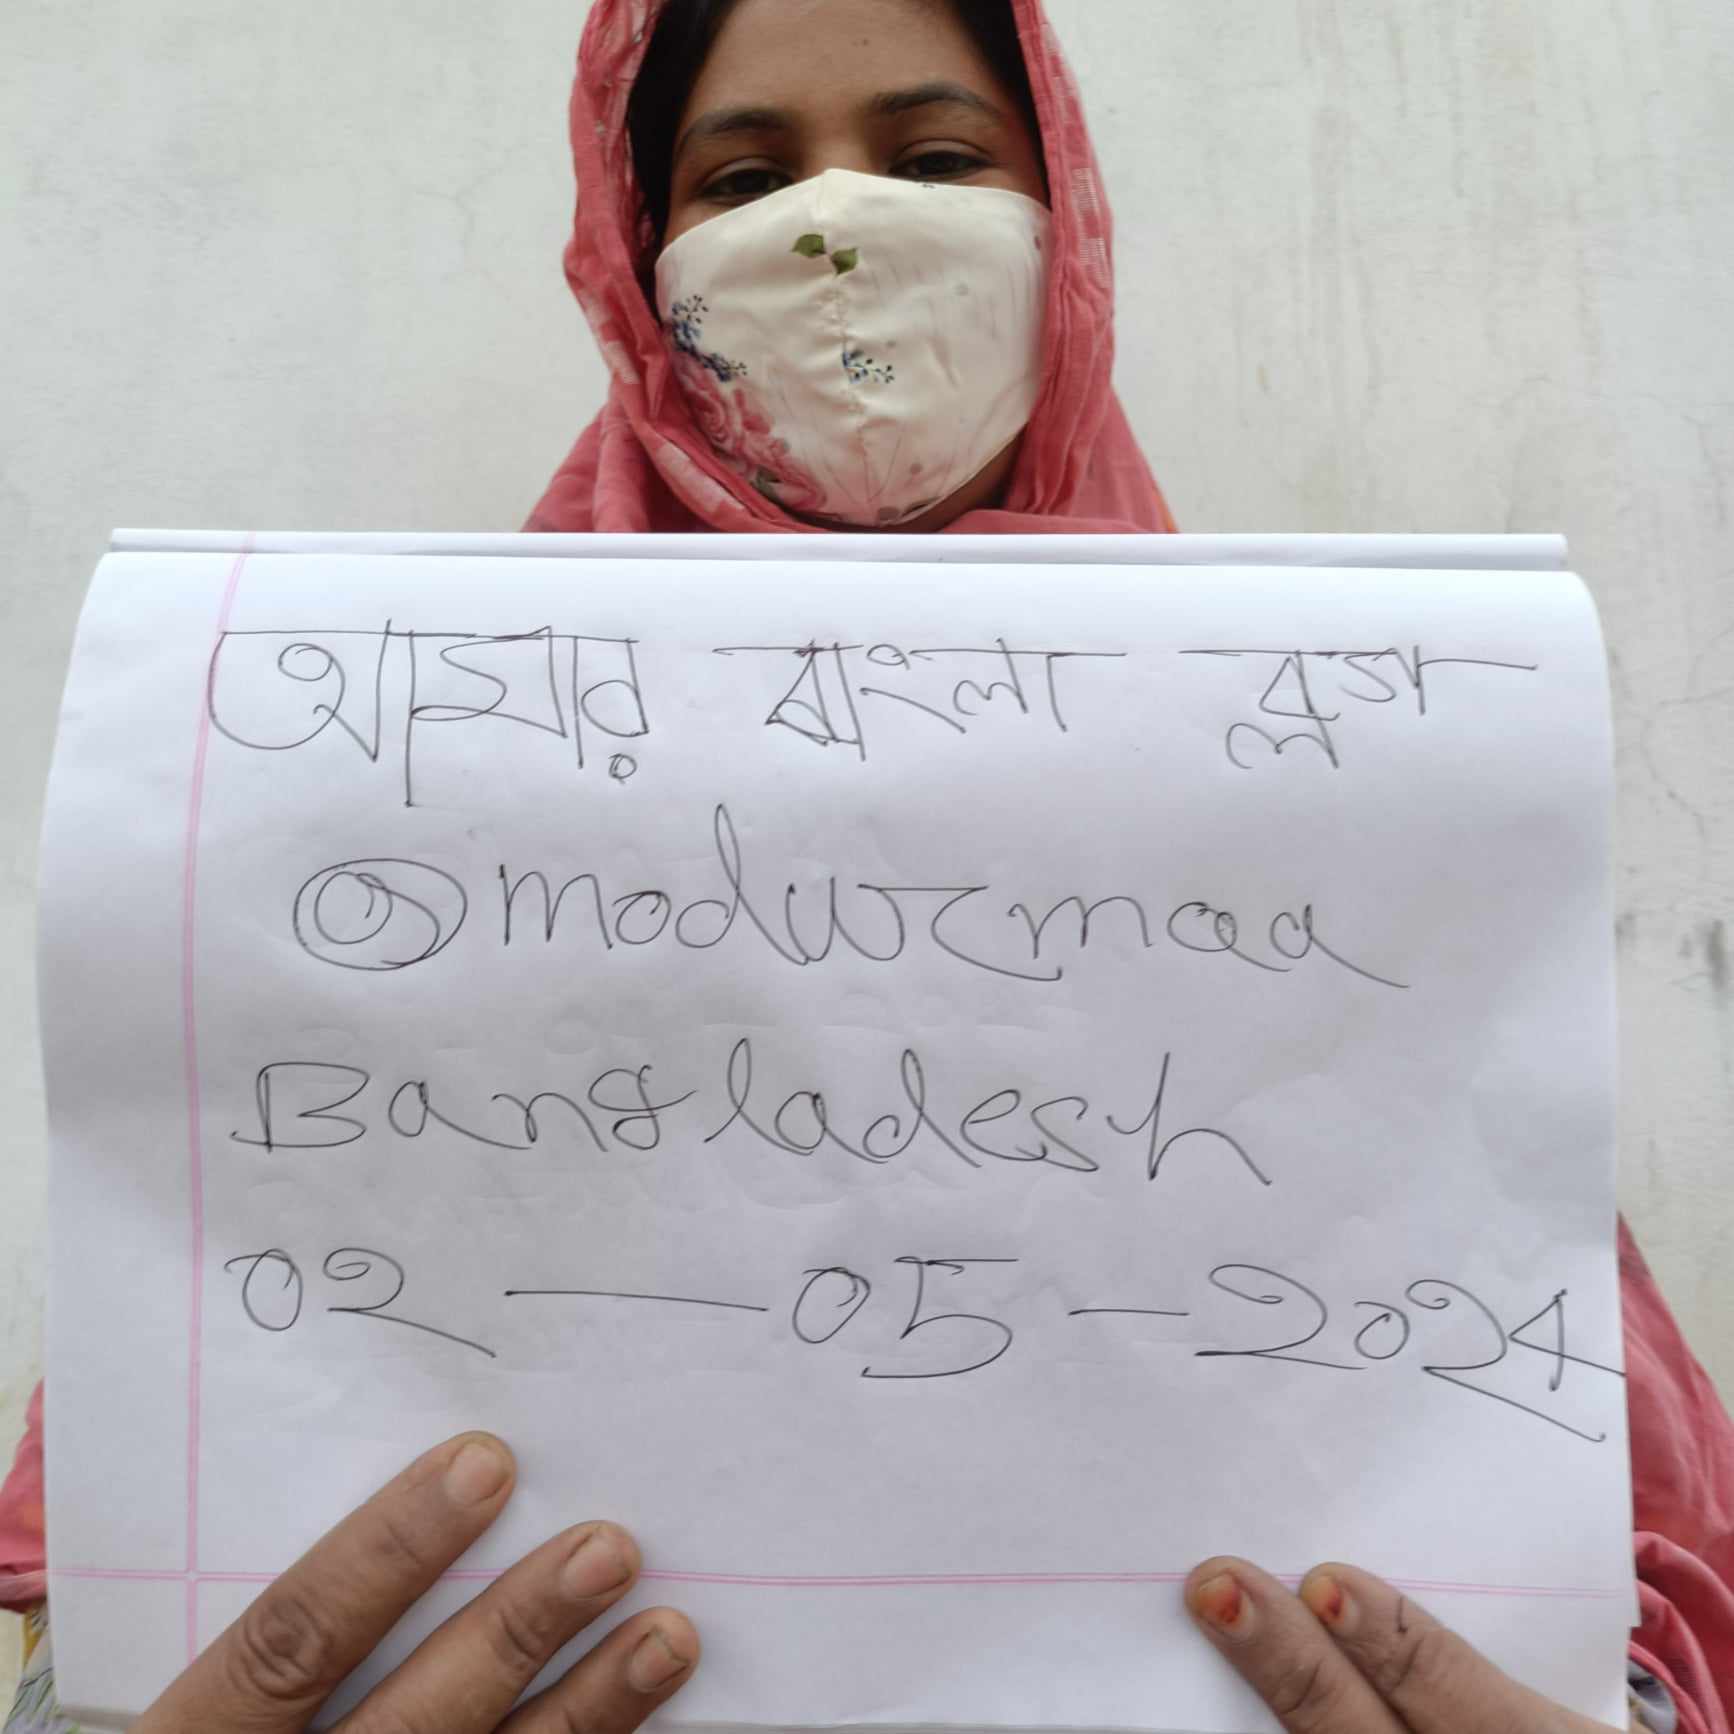 আমার বাংলা ব্লগ
@modurmaa
Bangladesh
02 — 05 - 2024